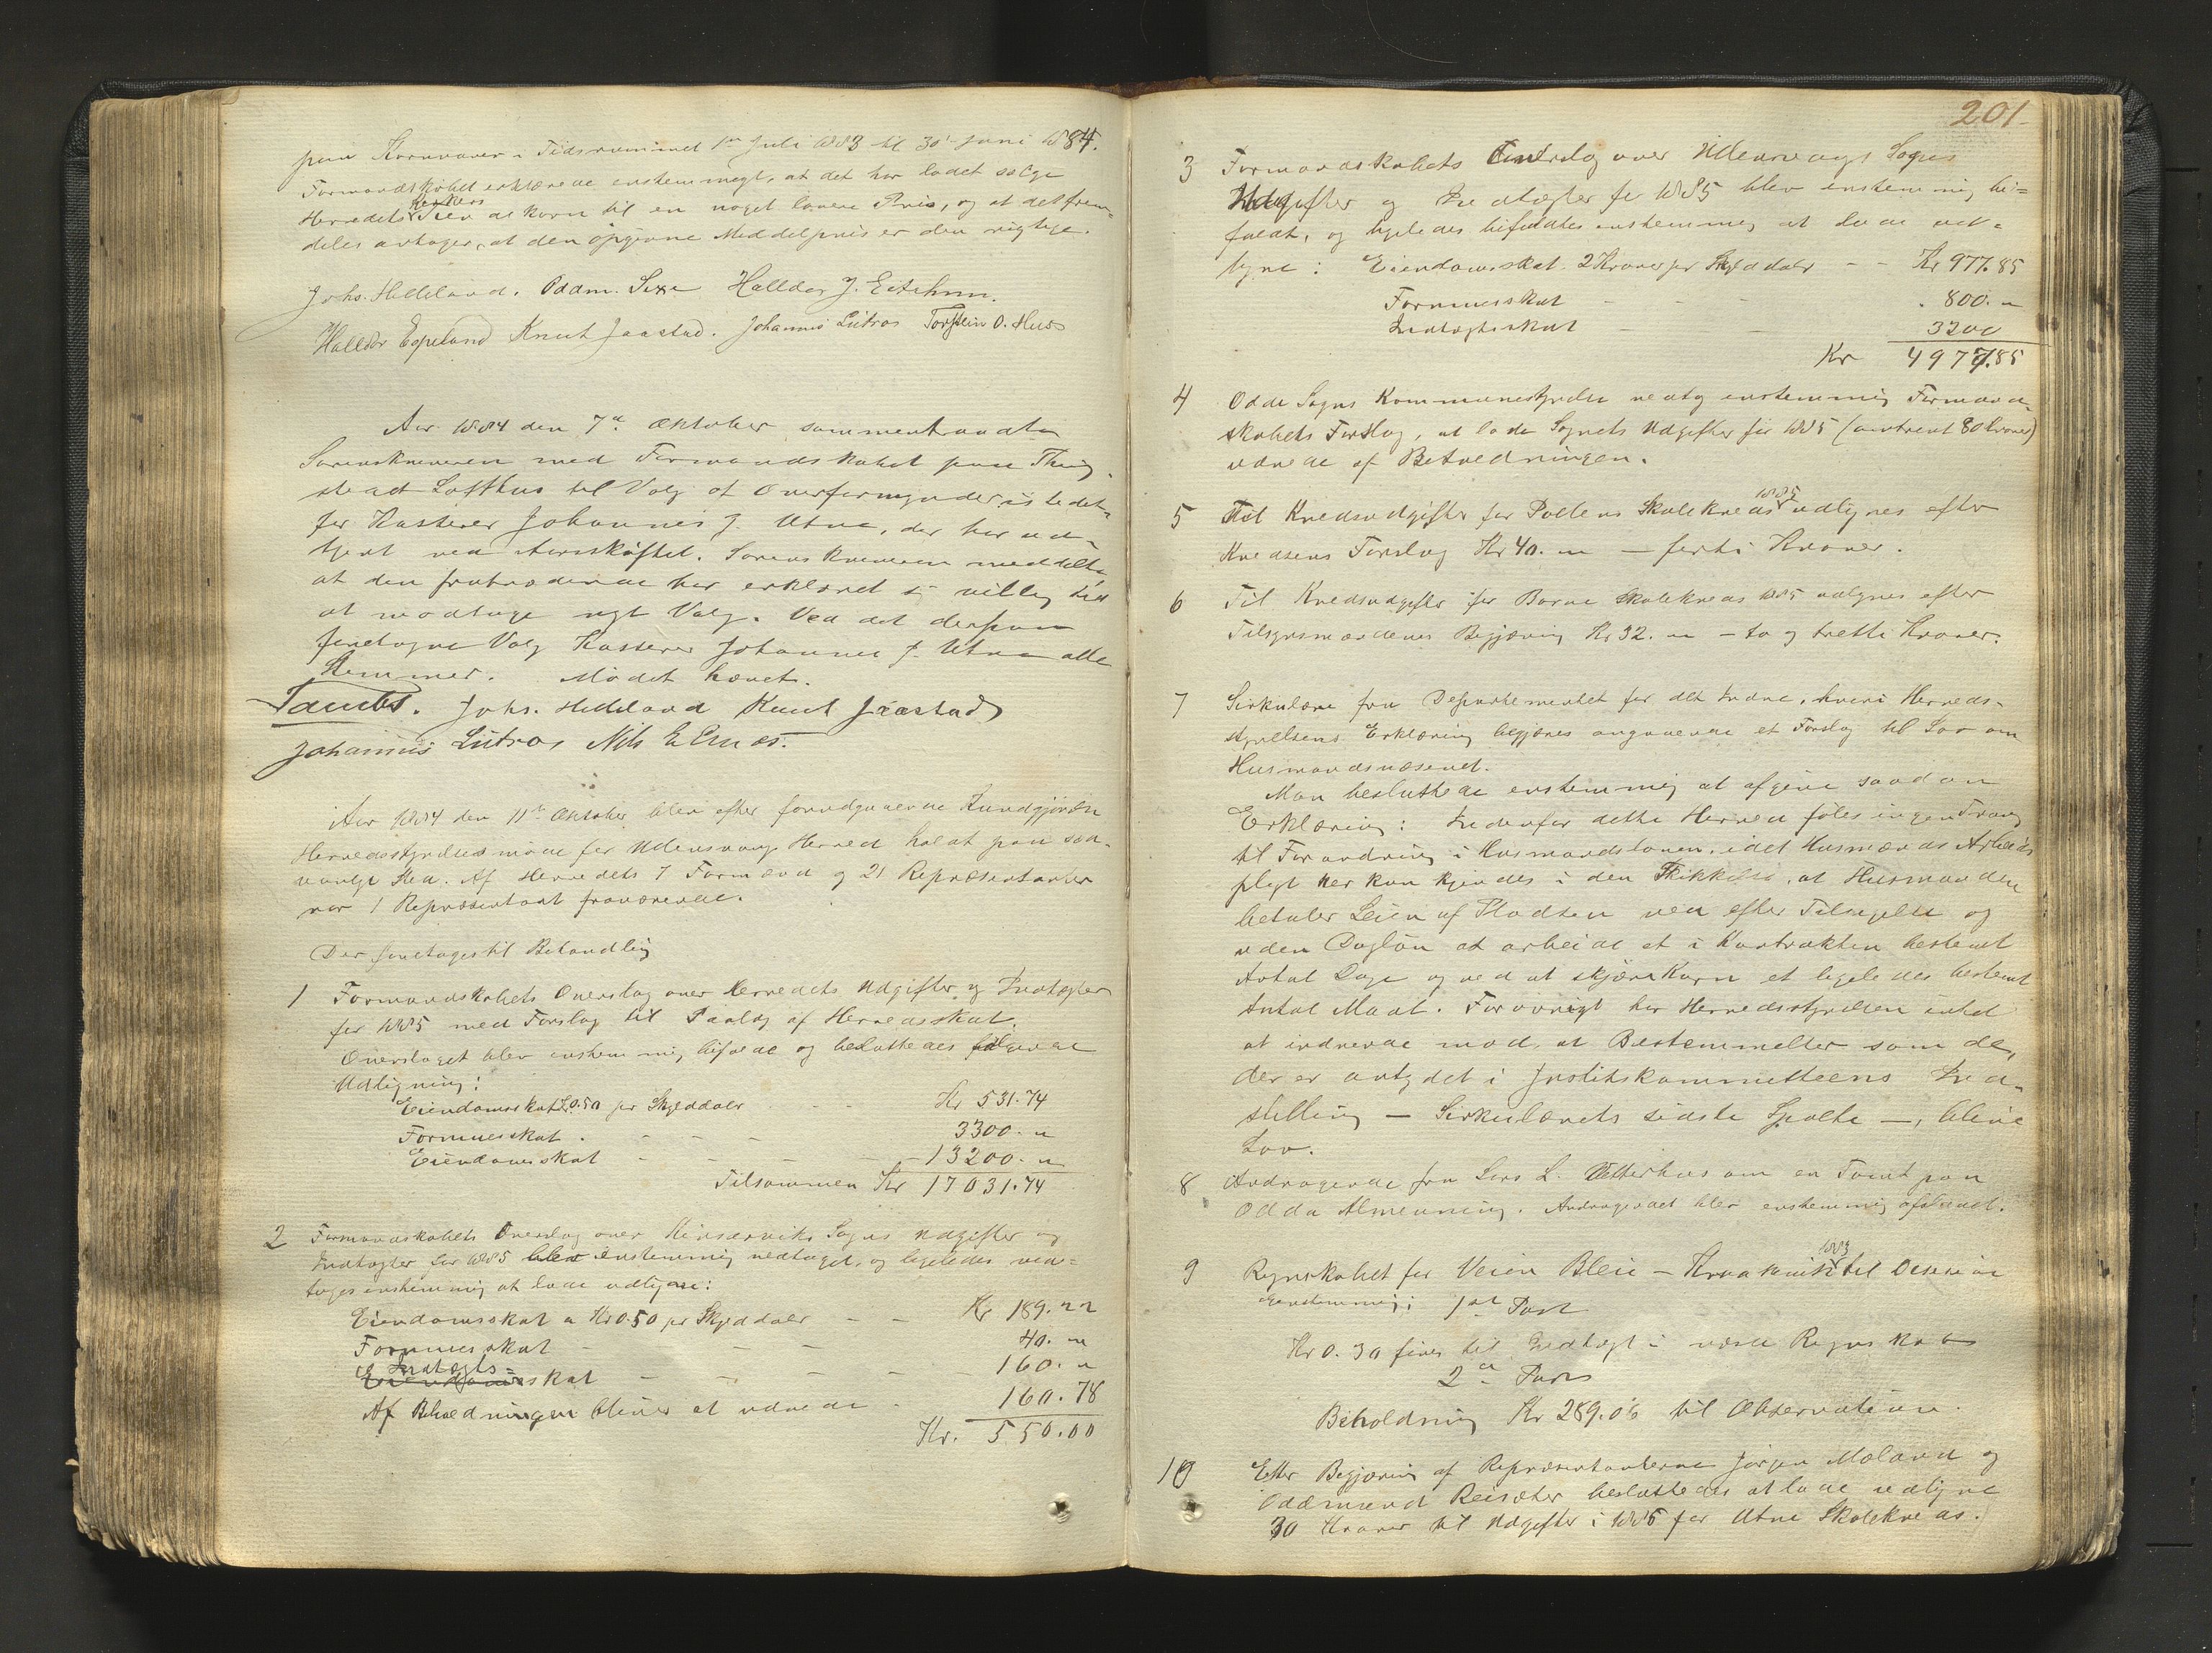 paa Kornvarer i Tidsrummet 1ste Juli 1883 til 30te Juni 1884.
Formandskabet erklærede enstemmigt, at det har ladet sælge
Herredets Kirkers Tiendekorn til en noget lavere Pris, og at det frem-
deles antager, at den opgivne Middelpris er den rigtige.
Johs. Helleland. Oddm. Sexe Halldor J.
Halldor Espeland Knut Jaastad. Johannes Lutro Torstein O. Hus
Aar 1884 den 7de Oktober sammentraadte
Sorenskriveren med Formandskabet paa Thing-
sted Lofthus til Valg af Overformynder istedet-
for Kasserer Johannes J. Utne, der har ud-
tjent ved Aarsskiftet. Sorenskriveren meddelte
at den fratrædende har erklæret sig villig til
at modtage nyt Valg. Ved det derpaa
foretagne Valg Kasserer Johannes J. Utne alle
Stemmer. Mødet hævet.
Johs. Helleland Knut Jaastad
Johannes Lutro Nils E.
Aar 1884 den 11te Oktober blev efter forudgaaende Kundgjørelse
Herredsstyrelsesmøde for Ullensvang Herred holdt paa sæd-
vanlige Sted. Af Herredets 7 Formænd og 21 Repræsentanter
var 1 Repræsentant fraværende.
Der foretoges til Behandling
1 Formandskabets Overslag over Herredets Udgifter og Indtægter
for 1885 med Forslag til Paalæg af Herredsskat.
Overslaget blev enstemmig bifaldt og besluttedes følgende
Udligning:
Eiendomsskat 0.50 pr Skylddaler - - Kr 531.74
Formuesskat . - - - 3300. „
Eiendomsskat - - - - 13200. „
Tilsammen Kr 17031.74
2 Formandskabets Overslag over Kinservik Sogns Udgifter og
Indtægter for 1885 blev enstemmig vedtaget, og ligeledes ved-
toges enstemmig at lade udligne:
Eiendomsskat a Kr 0.50 pr Skylddaler - - Kr 189.22
Formuesskat - - - 40. „
Indtægts-skat - - - - 160. „
Af Beholdningen bliver at udrede - 160.78
Kr. 550.00
201
3 Formandskabets Overslag over Ullensvangs Sogns
Udgifter og Indtægter for 1885 blev enstemmig bi-
faldt, og ligeledes bifaldtes enstemmig at lade ud-
ligne: Eiendomsskat 2 Kroner pr Skylddaler - - Kr 977.85
Formuesskat - - - . 800. „
Indtægtsskat - - 3200
Kr 4977.85
4 Odde Sogns Kommunestyrelse vedtog enstemmig Formand-
skabets Forslag, at lade Sognets Udgifter for 1885 (omtrent 80 Kroner)
udrede af Beholdningen.
5 Til Kredsudgifter for Pollens Skolekreds 1885 udlignes efter
Kredsens Forslag Kr 40. „ — førti Kroner.
6 Til Kredsudgifter for Borve Skolekreds 1885 udlignes efter
Tilsynsmændenes Begjæring Kr 32. „ — to og tretti Kroner.
7 Sirkulære fra Departementet for det Indre, hvori Herreds-
styrelsens Erklæring begjæres angaaende et Forslag til Lov om
Husmandsvæsenet.
Man besluttede enstemmig at afgive saadan
Erklæring: Indenfor dette Herred føles ingen Trang
til Forandring i Husmandsloven, idet Husmænds Arbeids-
pligt her kun kjendes i den Skikkelse, at Husmanden
betaler Leien af Pladsen ved efter Tilsigelse og
uden Dagløn at arbeide et i Kontrakten bestemt
Antal Dage og ved at skjære Korn et ligeledes bestemt
Antal Maal. Forøvrigt har Herredsstyrelsen intet
at indvende mod, at Bestemmelser som de,
der er antydet i Justitskommitteens Ind-
stilling — Sirkulærets sidste Spalte —, blive
Lov.
8 Andragende fra Lars L. om en Tomt paa
Odda Almenning. Andragendet blev enstemmig afslaaet.
9 Regnskabet for Veien Bleie — 1883 til Desision
Enstemmig: 1ste Post
Kr 0.30 føres til Indtægt i næste Regnskab
2den Post
Beholdning Kr 289.06 til Observation.
10 Efter Begjæring af Repræsentanterne Jørgen Mæland og
Oddmund Reisæter besluttedes at lade udligne
30 Kroner til Udgifter i 1885 for Utne Skolekreds.